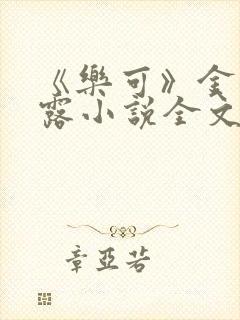 《樂可》金
露小說全文
章亞若